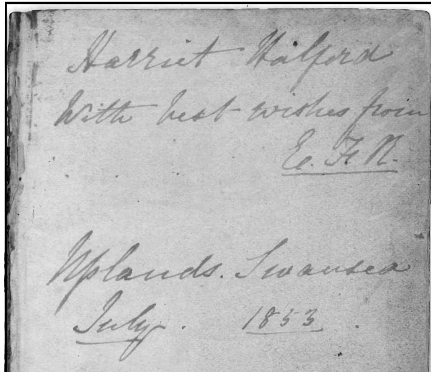 Harriet Halford
With best wishes from
E. F. N.
Uplands. Swansea
July. 1853.